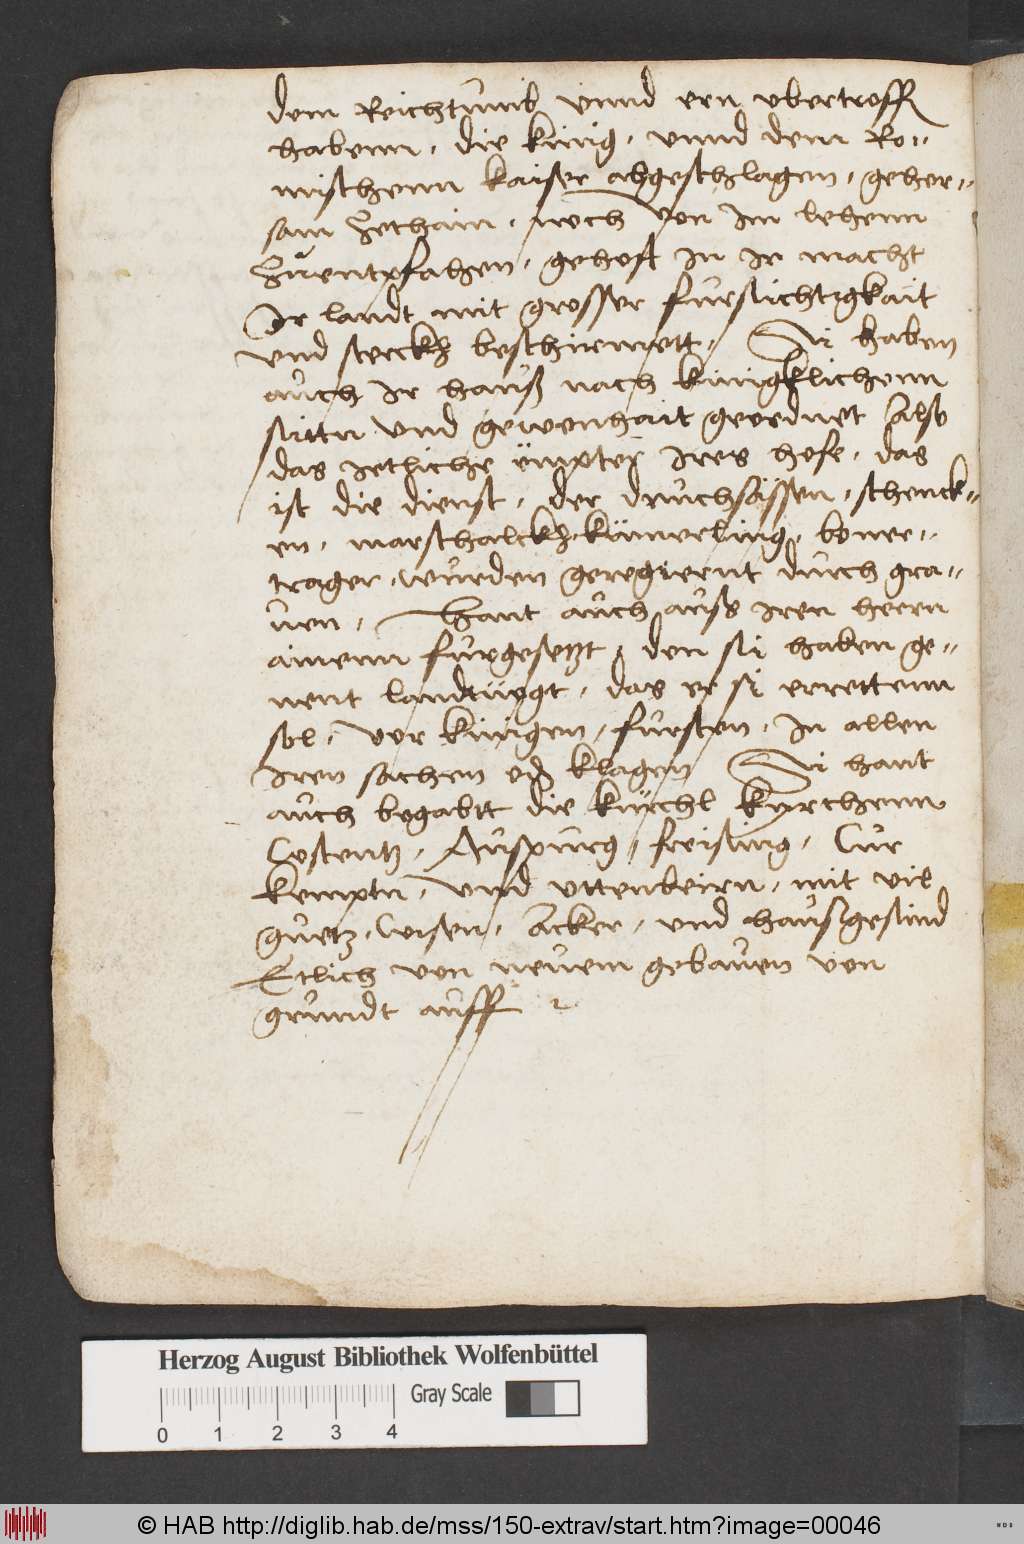 dem Reichtumb vnnd ern vbertroffn
habenn, die kunig, vnnd dem Ro=
mischenn kaiser abgeschlagen, gehor=
sam zethain, noch von Im lehenn
Zuentpfahen, gehoft In Ir macht
Ir landt mit grosser fursichtigkait
vnd sterckh beschirmett, Si haben
auch Ir hauß nach kunigklichenn
sittn vnd gewonhait geordnet Also
das Jetliche ëmpter Jres hofs, das
ist die dienst, der druchsässen, schenck=
en, marschalckh, kämerling, boner=
trager, wurden geregiernt durch gra=
uen, Hant auch auss Iren heern
ainenn furgesetzt, den si haben ge=
nent landtuogt, das er si errettenn
sol, vor kunigen, fursten, In allen
Iren sachen od klagen Si hant
auch begabtt die kuechl kyrchenn
Costentz, Auspurg, freising, Cur
kemptn, vnd vttenbeirn, mit vil
guetz, wisen, Acker, vnd haußgesind
Etlich von neuem gebauen von
grundt auff
Herzog August Bibliothek Wolfenbüttel
Gray Scale
0 1 2 3 4
© HAB http://diglib.hab.de/mss/150-extrav/start.htm?image=00046